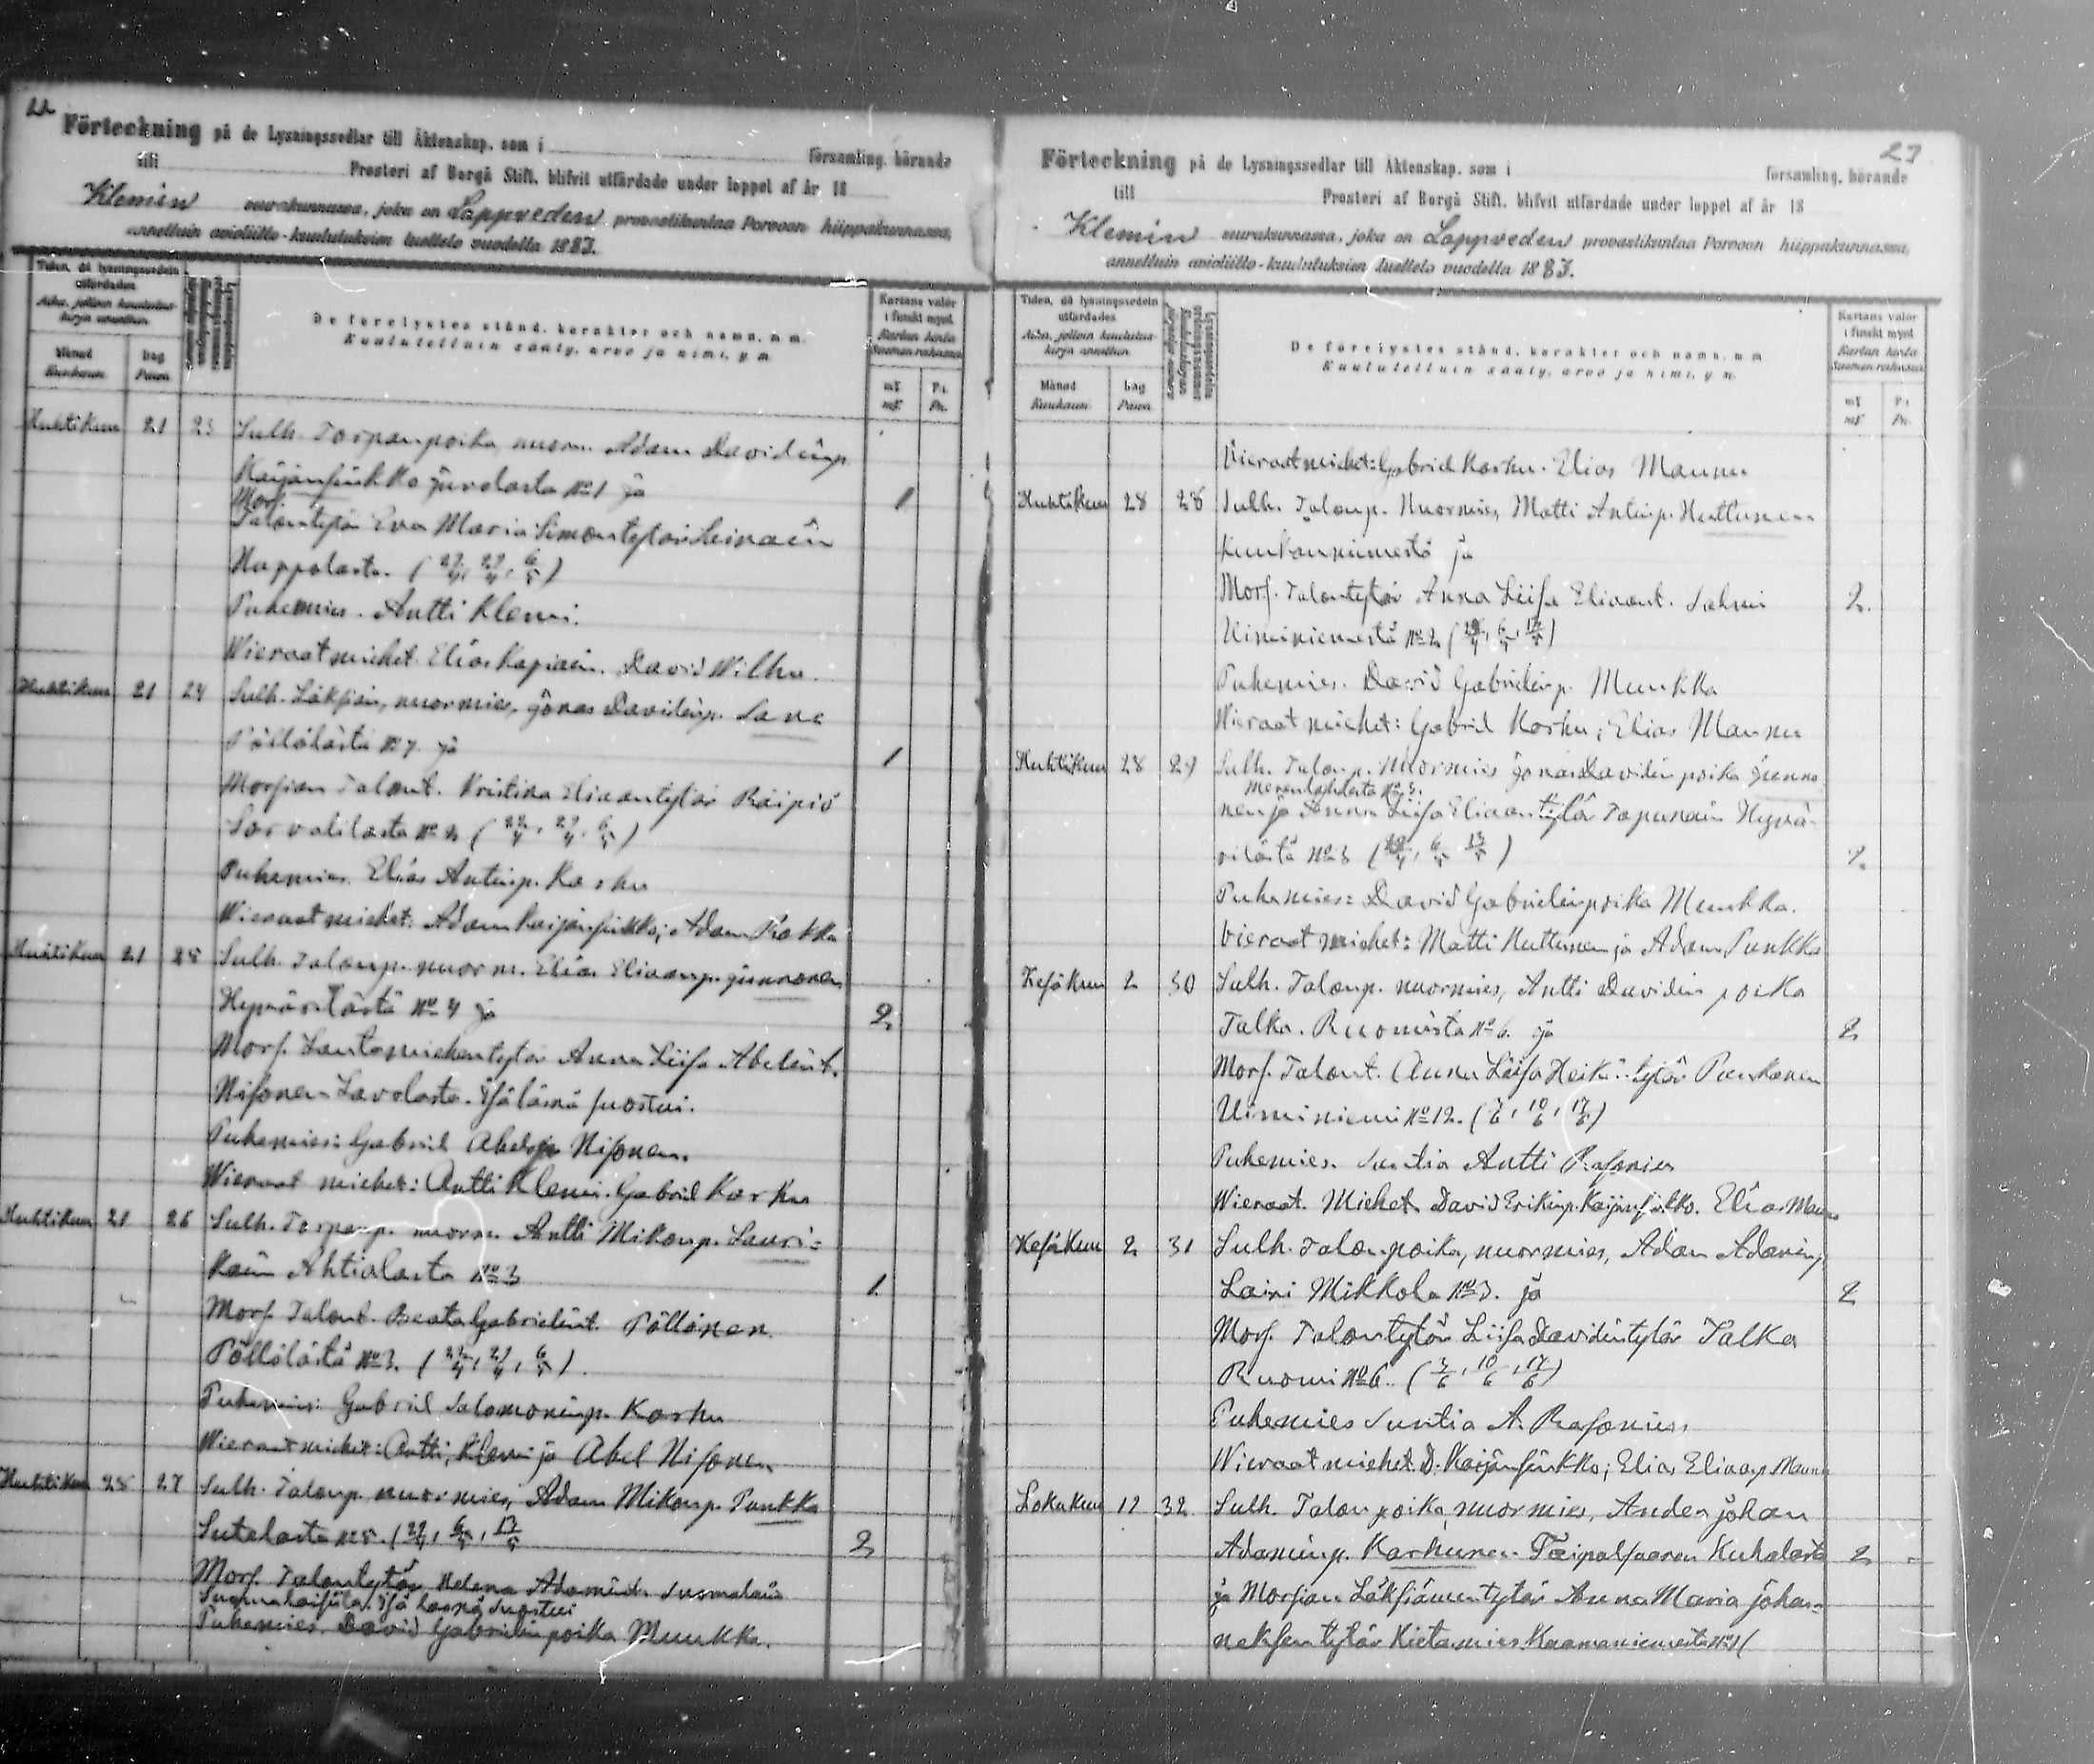 22
Förteckning på de Lysningssedlar till Äktenskap, som i församling, hörande
till Prosteri af Borgå Stift, blifvit utfärdade under loppet af år 18
Klemin seurakunnassa, joka on Lappveden provastikuntaa Porvoon hiippakunnassa,
annettuin avioliitto-kuulutuksien luettelo vuodelta 1883.
Tiden, då lysningssedeln utfärdades
Aika, jolloin kuulutuskirja annettiin
Månad Kuukausi
Dag Päivä
De förelystes stånd, karakter och namn, m. m.
Kuulutettuin sääty, arvo ja nimi, y. m.
Kartans valör i finskt mynt
Kartan hinta Suomen rahassa
mk Pi
mk Pn.
Huhtikuu 21 23 Sulh. Torpanpoika, nuorm. Adam Davidinp.
Kaijansinkko Jurolasta No 1 ja 1
Morf.
Talontytär Eva Maria Simontytär Leinain
Nappolasta. (22/4, 29/4, 6/5)
Puhemies. Antti Klemi.
Wieraat miehet. Elias Kapiain. David Wilhu.
Huhtikuu 21 24 Sulh. Läksiäin, nuormies, Jonas Davidinp. Sane
Pöllölästä No 7. ja 1
Morsian Talont. Kristina Eliaantytär Räipiö
Sorvalilasta No 2 (22/4, 29/4, 6/5)
Puhemies. Elias Antinp. Korhu
Wieraat miehet: Adam Kaijansinkko; Adam Rakka
Huhtikuu 21 25 Sulh. Talonp. nuorm. Elias Eliaanp. Junnonen
Hyvärilästä No 4 ja 2
Morf. Lautamiehentytär Anna Liisa Abelint.
Nisonen Lavolasta. Isä läsnä suostui.
Puhemies: Gabriel Abelinp. Nisonen.
Wieraat miehet: Antti Klemi. Gabriel Korhu
Huhtikuu 21 26 Sulh. Torpanp. nuorm. Antti Mikonp. Lauri=
kain Ahtialasta No 3 1
Morf. Talont. Beata Gabrielint. Pöllönen
Pöllölästä No 3. (22/4, 29/4, 6/5).
Puhemies: Gabriel Salomoninp. Korhu
Wieraat miehet: Antti, Klemi ja Abel Nisonen
Huhtikuu 28 27 Sulh. Talonp. nuormies, Adam Mikonp. Punkka
Sutelasta No 5. (29/4, 6/5, 13/5 2
Morf. Talontytär Helena Adamint. Suomalain
Suomahaisila. Isä läsnä, suostui
Puhemies. David Gabrielinpoika Munkka.
23
Förteckning på de Lysningssedlar till Äktenskap, som i församling, hörande
till Prosteri af Borgå Stift, blifvit utfärdade under loppet af år 18
Klemin seurakunnassa, joka on Lappveden provastikuntaa Porvoon hiippakunnassa,
annettuin avioliitto-kuulutuksien luettelo vuodelta 1883.
Tiden, då lysningssedeln utfärdades
Aika, jolloin kuulutuskirja annettiin
Månad Kuukausi
Dag Päivä
De förelystes stånd, karakter och namn, m. m.
Kuulutettuin sääty, arvo ja nimi, y. m.
Kartans valör i finskt mynt
Kartan hinta Suomen rahassa
mk Pi
mk Pn.
Vieraat miehet: Gabriel Korhu. Elias Maunu
Huhtikuu 28 28 Sulh. Talonp. Nuormies, Matti Antinp. Huttunen
Kuukanniemestä ja
Morf. Talontytär Anna Liisa Eliaant. Salmi 2.
Uiminiemestä No 2 (29/4, 6/5, 13/5)
Puhemies. David Gabrielinp. Munkka
Wieraat miehet: Gabriel Korhu; Elias Maunu
Huhtikuu 28 29 Sulh. Talonp. Nuormies Jonas Davidin poika Junno
Merenlahdesta No 3.
nen ja Anna Liisa Eliaantytär Tapanain Hyvä-
rilästä No 3 (29/4, 6/5 13/5) 2
Puhemies: David Gabrielinpoika Munkka.
Vieraat miehet: Matti Huttunen ja Adam Punkka
Kesäkuu 2 30 Sulh. Talonp. nuormies, Antti Davidin poika
Talka. Ruomista No 6. ja 2
Morf. Talont. Anna Liisa Heikintytär Punkanen
Uiminiemi No 12. (3/6, 10/6, 17/6)
Puhemies. Suntia Antti Rasonius
Wieraat. Miehet David Erikinp. Kaijansinkko. Elias Maunu
Kesäkuu 2 31 Sulh. Talonpoika, nuormies, Adam Adaminp.
Laini Mikkola No 3. ja 2
Morf. Talontytär Liisa Davidintytär Talka
Ruomi No 6. (3/6, 10/6, 17/6)
Puhemies Suntia A. Rasonius
Wieraat miehet. D. Kaijansinkko; Elias Eliaanp. Maunu
Lokakuu 12 32 Sulh. Talonpoika, nuormies, Anders Johan
Adaminp. Karhunen Taipalsaaren Kuhalasta 2
ja Morsian Läksiämentytär Anna Maria Johan=
neksen tytär Kietamies Kaamaniemestä No 1 (